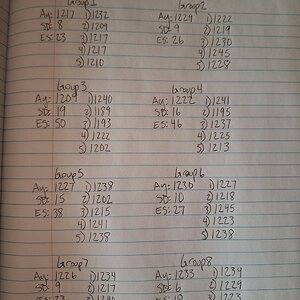 Group 1
Av: 1217 1) 1232
SD: 8 2) 1209
ES: 23 3) 1217
4) 1217
5) 1210
Group 2
Av: 1229 1) 1222
SD: 9 2) 1219
ES: 26 3) 1230
4) 1245
5) 1228
Group 3
Av: 1209 1) 1240
SD: 19 2) 1189
ES: 50 3) 1193
4) 1222
5) 1202
Group 4
Av: 1222 1) 1241
SD: 16 2) 1195
ES: 46 3) 1237
4) 1225
5) 1213
Group 5
Av: 1227 1) 1238
SD: 15 2) 1202
ES: 38 3) 1215
4) 1241
5) 1238
Group 6
Av: 1230 1) 1227
SD: 10 2) 1218
ES: 27 3) 1245
4) 1223
5) 1238
Group 7
Av: 1226 1) 1234
SD: 9 2) 1217
Group 8
Av: 1233 1) 1239
SD: 6 2) 1229